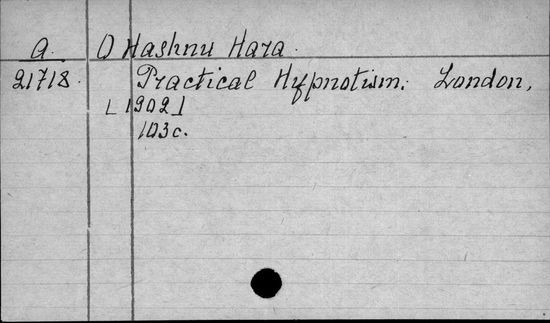 a. O Hashnu Hara.
21718. Practical Hypnotism. London,
[1902]
103c.